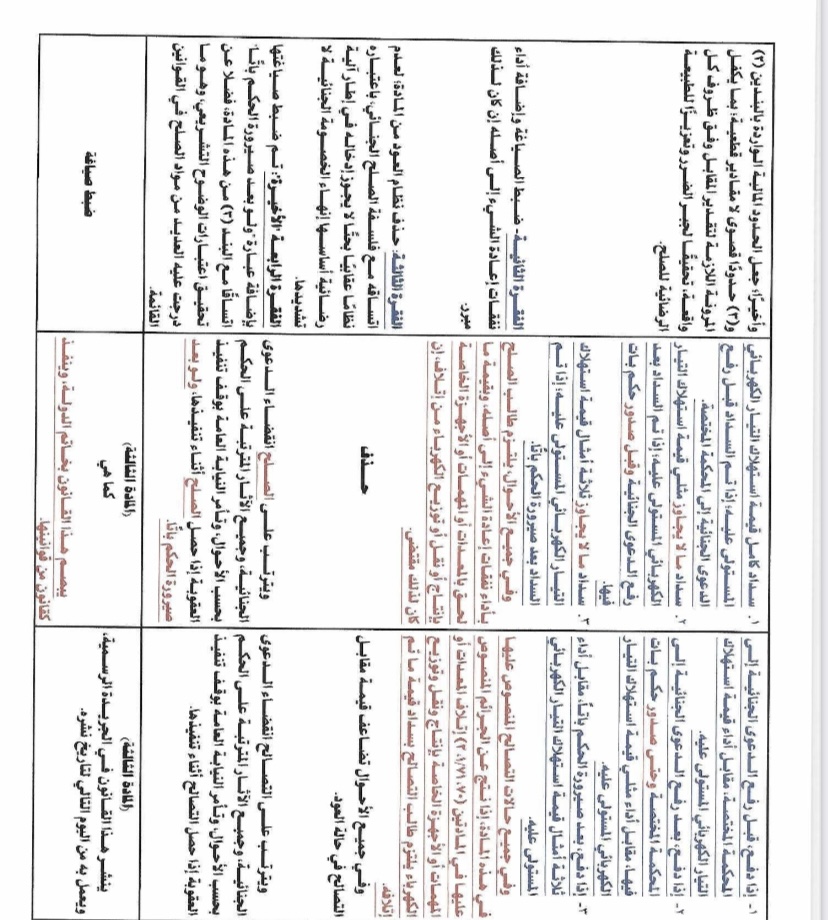 ١- إذا دفع، قبل رفع الدعوى الجنائية إلى
المحكمة المختصة، مقابل أداء قيمة استهلاك
التيار الكهربائي المستولى عليه.
٢- إذا دفع، بعد رفع الدعوى الجنائية إلى
المحكمة المختصة وحتى صدور حكم بات
فيها، مقابل أداء مثلي قيمة استهلاك التيار
الكهربائي المستولى عليه.
٣- إذا دفع، بعد صيرورة الحكم باتاً، مقابل أداء
ثلاثة أمثال قيمة استهلاك التيار الكهربائي
المستولى عليه.
وفي جميع حالات التصالح المنصوص عليها
في هذه المادة، إذا نتج عن الجرائم المنصوص
عليها في المادتين (٧٠، ٧١/ ١، ٢) إتلاف المعدات أو
المهمات أو الأجهزة الخاصة بإنتاج ونقل وتوزيع
الكهرباء يلتزم طالب التصالح بسداد قيمة ما تم
إتلافه.
وفي جميع الأحوال تضاعف قيمة مقابل
التصالح في حالة العود.
ويترتب على التصالح انقضاء الدعوى
الجنائية، وجميع الآثار المترتبة على الحكم
بحسب الأحوال، وتأمر النيابة العامة بوقف تنفيذ
العقوبة إذا حصل التصالح أثناء تنفيذها.
(المادة الثالثة)
ينشر هذا القانون في الجريدة الرسمية،
ويعمل به من اليوم التالي لتاريخ نشره.
١. سداد كامل قيمة استهلاك التيار الكهربائي
المستولى عليه؛ إذا تم السداد قبل رفع
الدعوى الجنائية إلى المحكمة المختصة.
٢. سداد ما لا يجاوز مثلي قيمة استهلاك التيار
الكهربائي المستولى عليه؛ إذا تم السداد بعد
رفع الدعوى الجنائية وقبل صدور حكم بات
فيها.
٣. سداد ما لا يجاوز ثلاثة أمثال قيمة استهلاك
التيار الكهربائي المستولى عليه؛ إذا تم
السداد بعد صيرورة الحكم باتًا.
وفي جميع الأحوال، يلتزم طالب الصلح
بأداء نفقات إعادة الشيء إلى أصله، وبقيمة ما
لحق بالمعدات أو المهمات أو الأجهزة الخاصة
بإنتاج أو نقل أو توزيع الكهرباء من إتلاف، إن
كان لذلك مقتضى.
حذف
ويترتب على الصلح انقضاء الدعوى
الجنائية، وجميع الآثار المترتبة على الحكم
بحسب الأحوال، وتأمر النيابة العامة بوقف تنفيذ
العقوبة إذا حصل الصلح أثناء تنفيذها، ولو بعد
صيرورة الحكم باتًا.
(المادة الثالثة)
كما هي
يبصم هذا القانون بخاتم الدولة، وينفذ
كقانون من قوانينها.
وأخيرًا؛ جعل الحدود المالية الواردة بالبندين (٢)
و(٣) حدودًا قصوى لا مقادير قطعية؛ بما يكفل
المرونة اللازمة لتقدير المقابل وفق ظروف كل
واقعة، تحقيقًا لجبر الضرر وتعزيزًا للطبيعة
الرضائية للصلح.
الفقرة الثانية- ضبط الصياغة وإضافة أداء
نفقات إعادة الشيء إلى أصله إن كان لذلك
مبرر.
الفقرة الثالثة: حذف نظام العود من المادة؛ لعدم
اتساقه مع فلسفة الصلح الجنائي، باعتباره
نظامًا عقابيًا بحتًا لا يجوز إدخاله في إطار آلية
رضائية أساسها إنهاء الخصومة الجنائية لا
تشديدها.
الفقرة الرابعة "الأخيرة": تم ضبط صياغتها
بإضافة عبارة "ولو بعد صيرورة الحكم باتًا".
اتساقًا مع البند (٣) من هذه المادة، فضلا عن
تحقيق اعتبارات الوضوح التشريعي، وهو ما
درجت عليه العديد من مواد الصلح في القوانين
القائمة.
ضبط صياغة